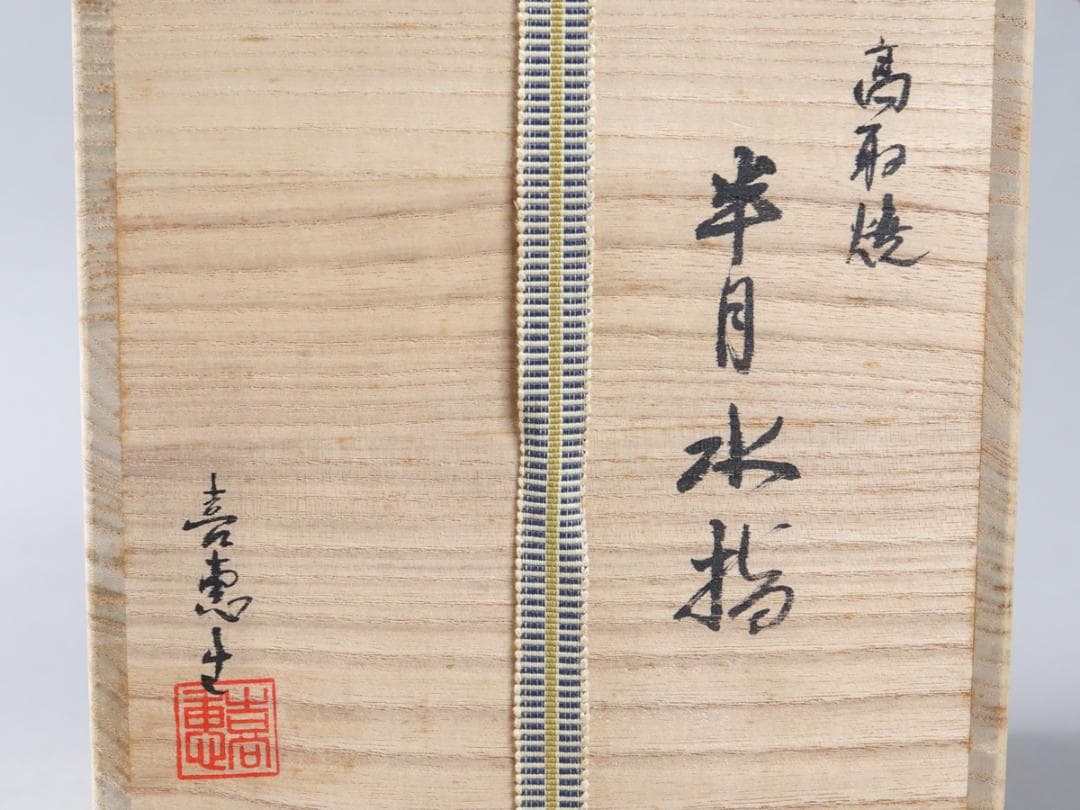 高取焼
半月水指
喜恵生
喜恵